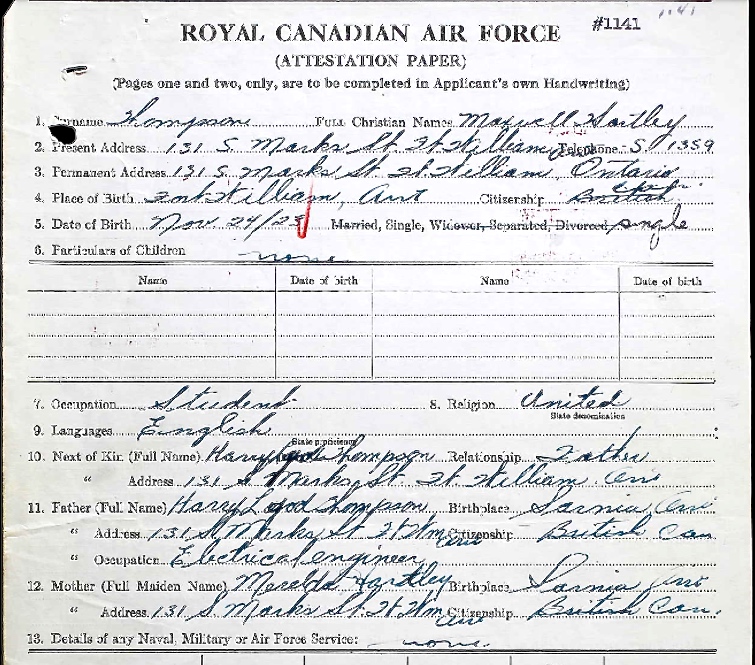 #1141
ROYAL CANADIAN AIR FORCE
(ATTESTATION PAPER)
(Pages one and two, only, are to be completed in Applicant's own Handwriting)
1. Surname Thompson Full Christian Names Maxwell Hartley
2. Present Address 131 S. Marks St. Ft William Telephone S. 1359
3. Permanent Address 131 S. Marks St. Ft William, Ontario
4. Place of Birth Fort William, Ont Citizenship British
5. Date of Birth Nov 24/23 Married, Single, Widower, Separated, Divorced single
6. Particulars of Children none
Name Date of birth Name Date of birth
7. Occupation Student 8. Religion United
State denomination
9. Languages English
State proficiency
10. Next of Kin (Full Name) Harry Thompson Relationship Father
" Address 131 S Marks St. Ft William Ont
11. Father (Full Name) Harry Thompson Birthplace Sarnia Ont
" Address 131 S Marks St Ft Wm Ont Citizenship British Can
" Occupation Electrical engineer
12. Mother (Full Maiden Name) Hartley Birthplace Sarnia Ont
" Address 131 S Marks St. Ft Wm Ont Citizenship British Can.
13. Details of any Naval, Military or Air Force Service: none.